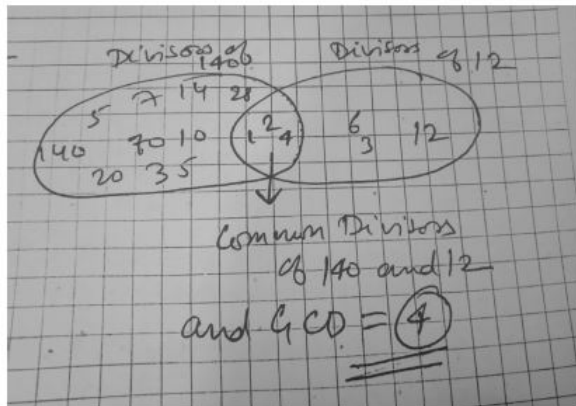 Divisors of 140
Divisors of 12
5 7 14 28
140 70 10 1 2 4 6 3 12
20 35
Common Divisors
of 140 and 12
and GCD = 4